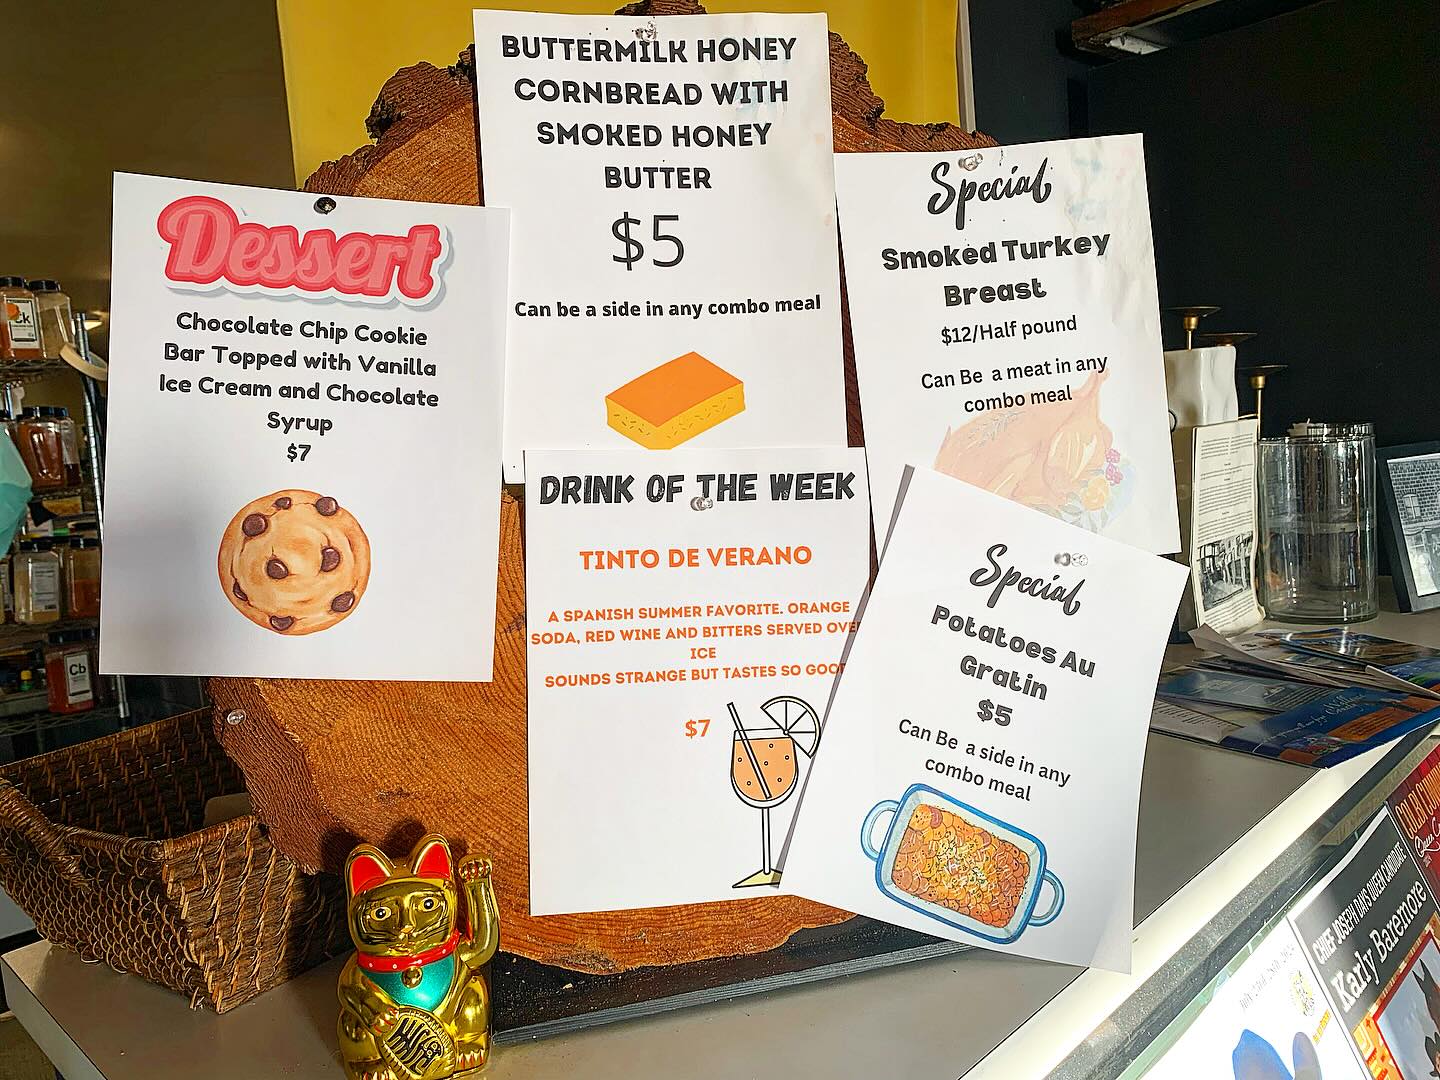 Dessert
Chocolate Chip Cookie
Bar Topped with Vanilla
Ice Cream and Chocolate
Syrup
$7
BUTTERMILK HONEY
CORNBREAD WITH
SMOKED HONEY
BUTTER
$5
Can be a side in any combo meal
Special
Smoked Turkey
Breast
$12/Half pound
Can Be a meat in any
combo meal
DRINK OF THE WEEK
TINTO DE VERANO
A SPANISH SUMMER FAVORITE. ORANGE
SODA, RED WINE AND BITTERS SERVED OVE
ICE
SOUNDS STRANGE BUT TASTES SO GOO
$7
Special
Potatoes Au
Gratin
$5
Can Be a side in any
combo meal
Cb
CHIEF JOSEPH DAYS QUEEN CANDIDATE
Karly Baremore